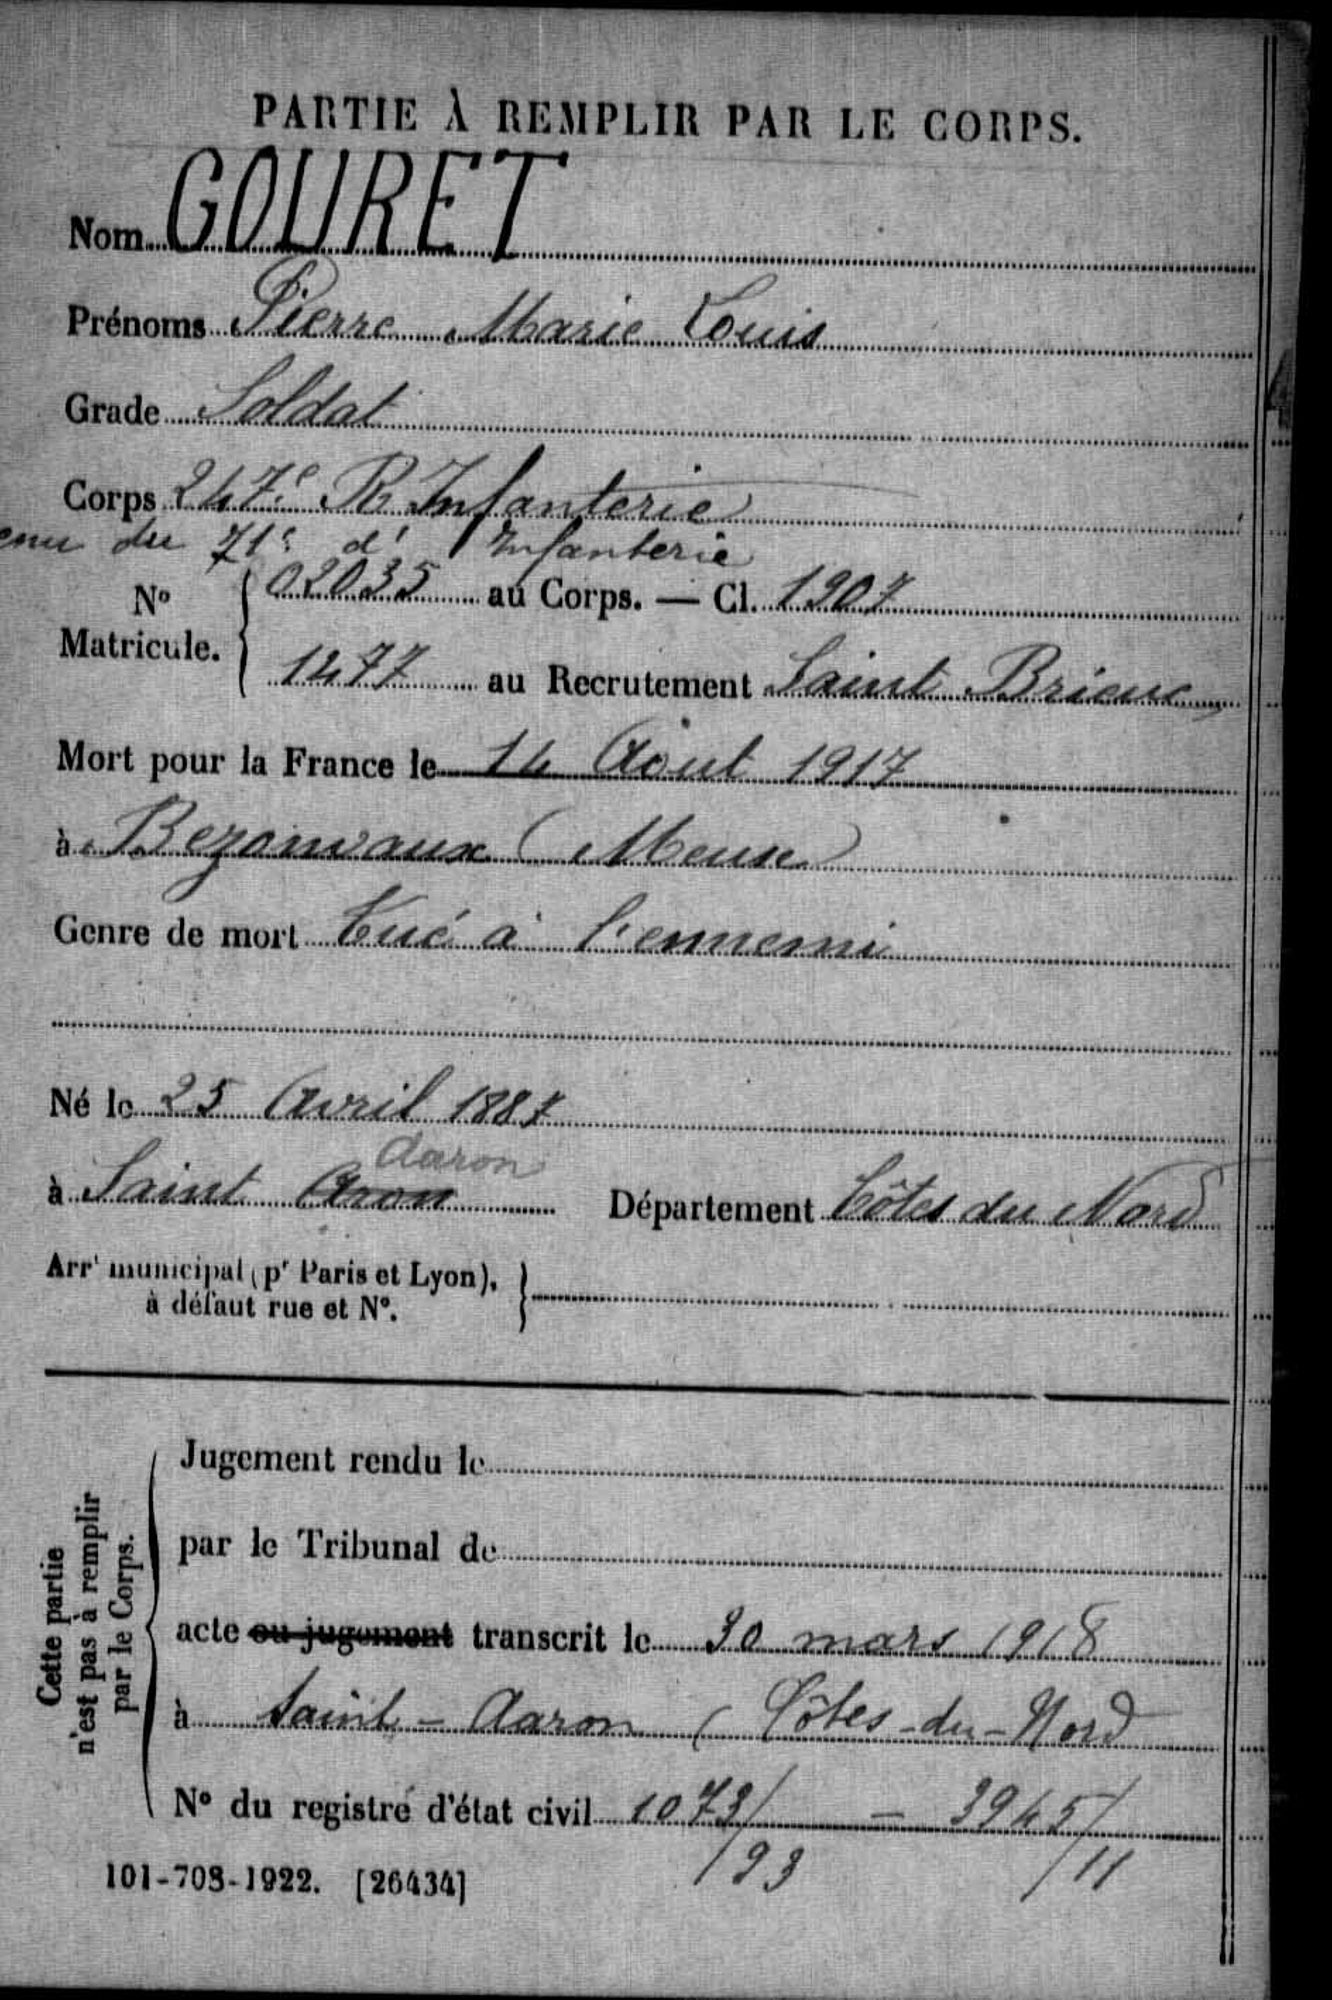 PARTIE À REMPLIR PAR LE CORPS.
Nom GOURET
Prénoms Pierre Marie Louis
Grade Soldat
Corps 247e R Infanterie
enu du 71e d' Infanterie
No Matricule. { 02035 au Corps. — Cl. 1907
1477 au Recrutement Saint Brieuc
Mort pour la France le 14 Août 1917
à Bezonvaux (Meuse)
Genre de mort Tué à l'ennemi
Né le 25 Avril 1887
Aaron
à Saint Aron Département Côtes du Nord
Arrt municipal (pr Paris et Lyon),
à défaut rue et No.
Cette partie
n'est pas à remplir
par le Corps.
Jugement rendu le
par le Tribunal de
acte ou jugement transcrit le 30 mars 1918
à Saint-Aaron (Côtes-du-Nord
No du registre d'état civil 1073/ — 3945/
/93 /11
101-708-1922. [26434]